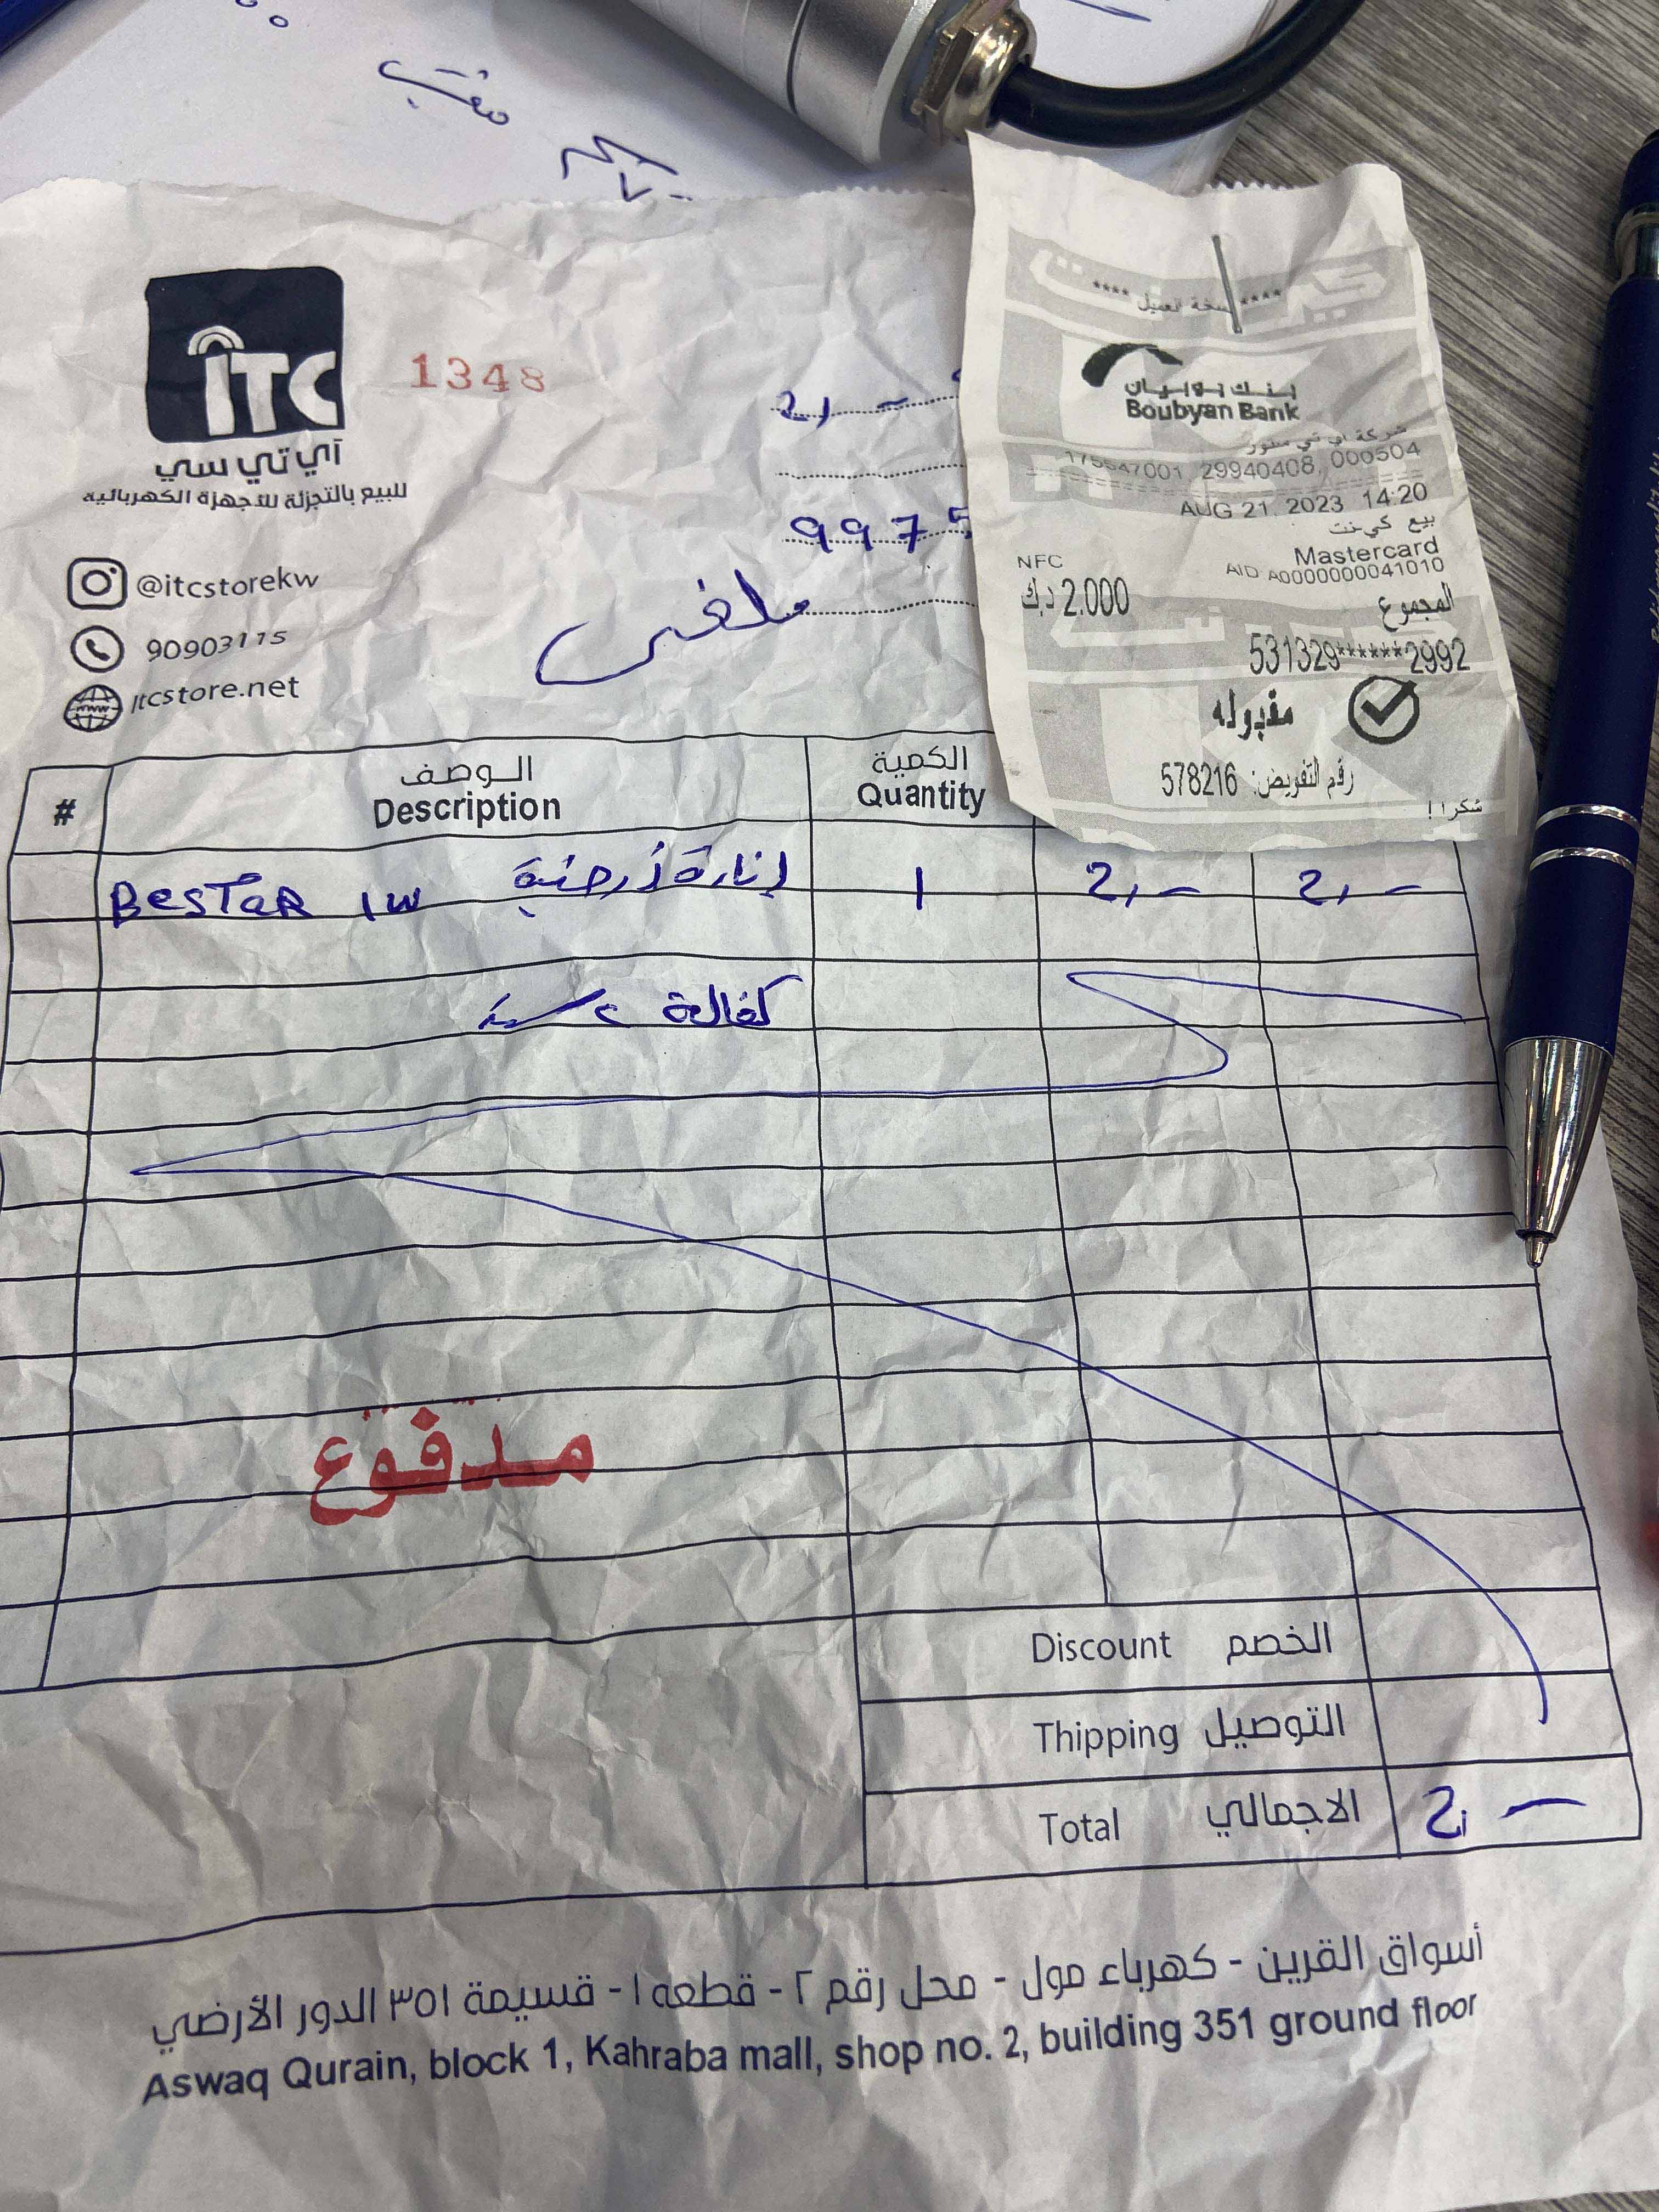 ITC
آي تي سي
للبيع بالتجزئة للأجهزة الكهربائية
1348
@itcstorekw
90903115
Itcstore.net
2,-
9975
ملغى
**** نسخة العميل ****
بنك بوبيان
Boubyan Bank
29940408, 000504
AUG 21, 2023 14:20
بيع كي-نت
Mastercard
NFC AID A0000000041010
المجموع 2.000 د.ك
531329******2992
مقبوله
رقم التفويض: 578216
شكرا !
# الوصف الكمية
Description Quantity
BESTAR 1W إنارة أرضية 1 2,- 2,-
كفالة ٢ سنة
مدفوع
Discount الخصم
Thipping التوصيل
Total الاجمالي 2,-
أسواق القرين - كهرباء مول - محل رقم ٢ - قطعه ١ - قسيمة ٣٥١ الدور الأرضي
Aswaq Qurain, block 1, Kahraba mall, shop no. 2, building 351 ground floor